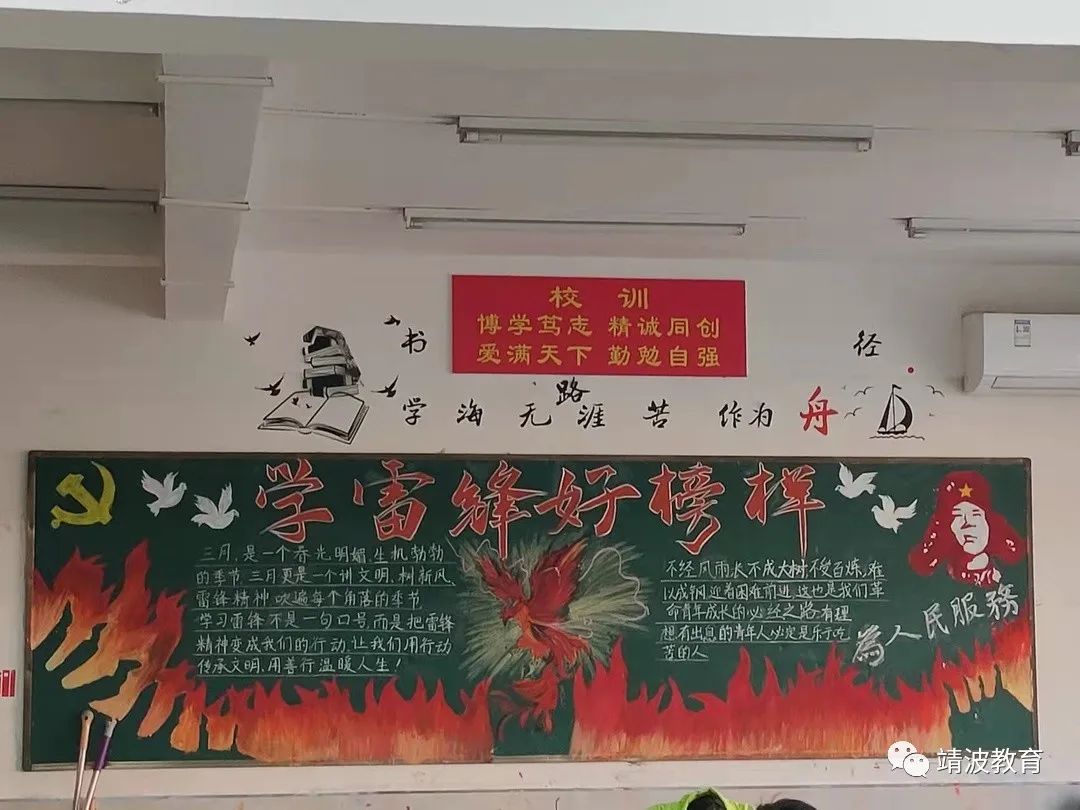 校训
博学笃志 精诚同创
爱满天下 勤勉自强
书 路 径
学海无涯苦作为舟
学雷锋好榜样
三月,是一个春光明媚,生机勃勃
的季节,三月更是一个讲文明,树新风,
雷锋精神吹遍每个角落的季节
学习雷锋不是一句口号,而是把雷锋
精神变成我们的行动,让我们用行动
传承文明,用善行温暖人生!
不经风雨,长不成大树,不受百炼,难
以成钢,迎着困难前进,这也是我们革
命青年成长的必经之路,有理
想有出息的青年人必定是乐于吃
苦的人
為人民服務
靖波教育